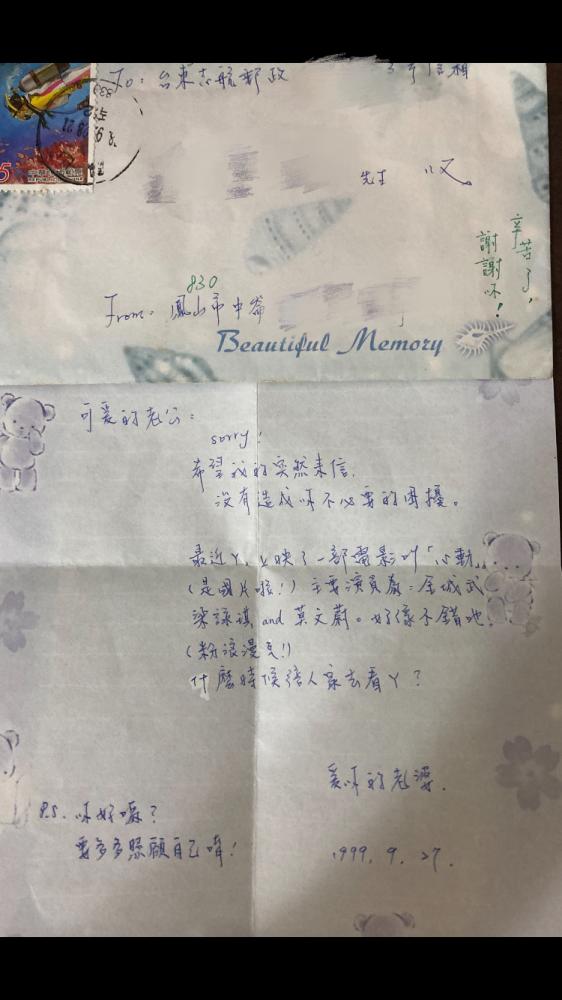 To: 台東志航郵政
號信箱
先生 收
辛苦了,
謝謝你!
830
From: 鳳山市中崙
Beautiful Memory
5
可爱的老公:
sorry!
希望我的突然來信,
没有造成你不必要的困擾。
最近ㄚ,上映了一部電影叫「心動」
(是國片啦!) 主要演員為:金城武
梁詠琪 and 莫文蔚。好像不錯吔!
(粉浪漫ㄛ!!)
什麼時候陪人家去看ㄚ?
爱你的老婆.
P.S. 你好嗎?
要多多照顧自己唷!
1999. 9. 27.